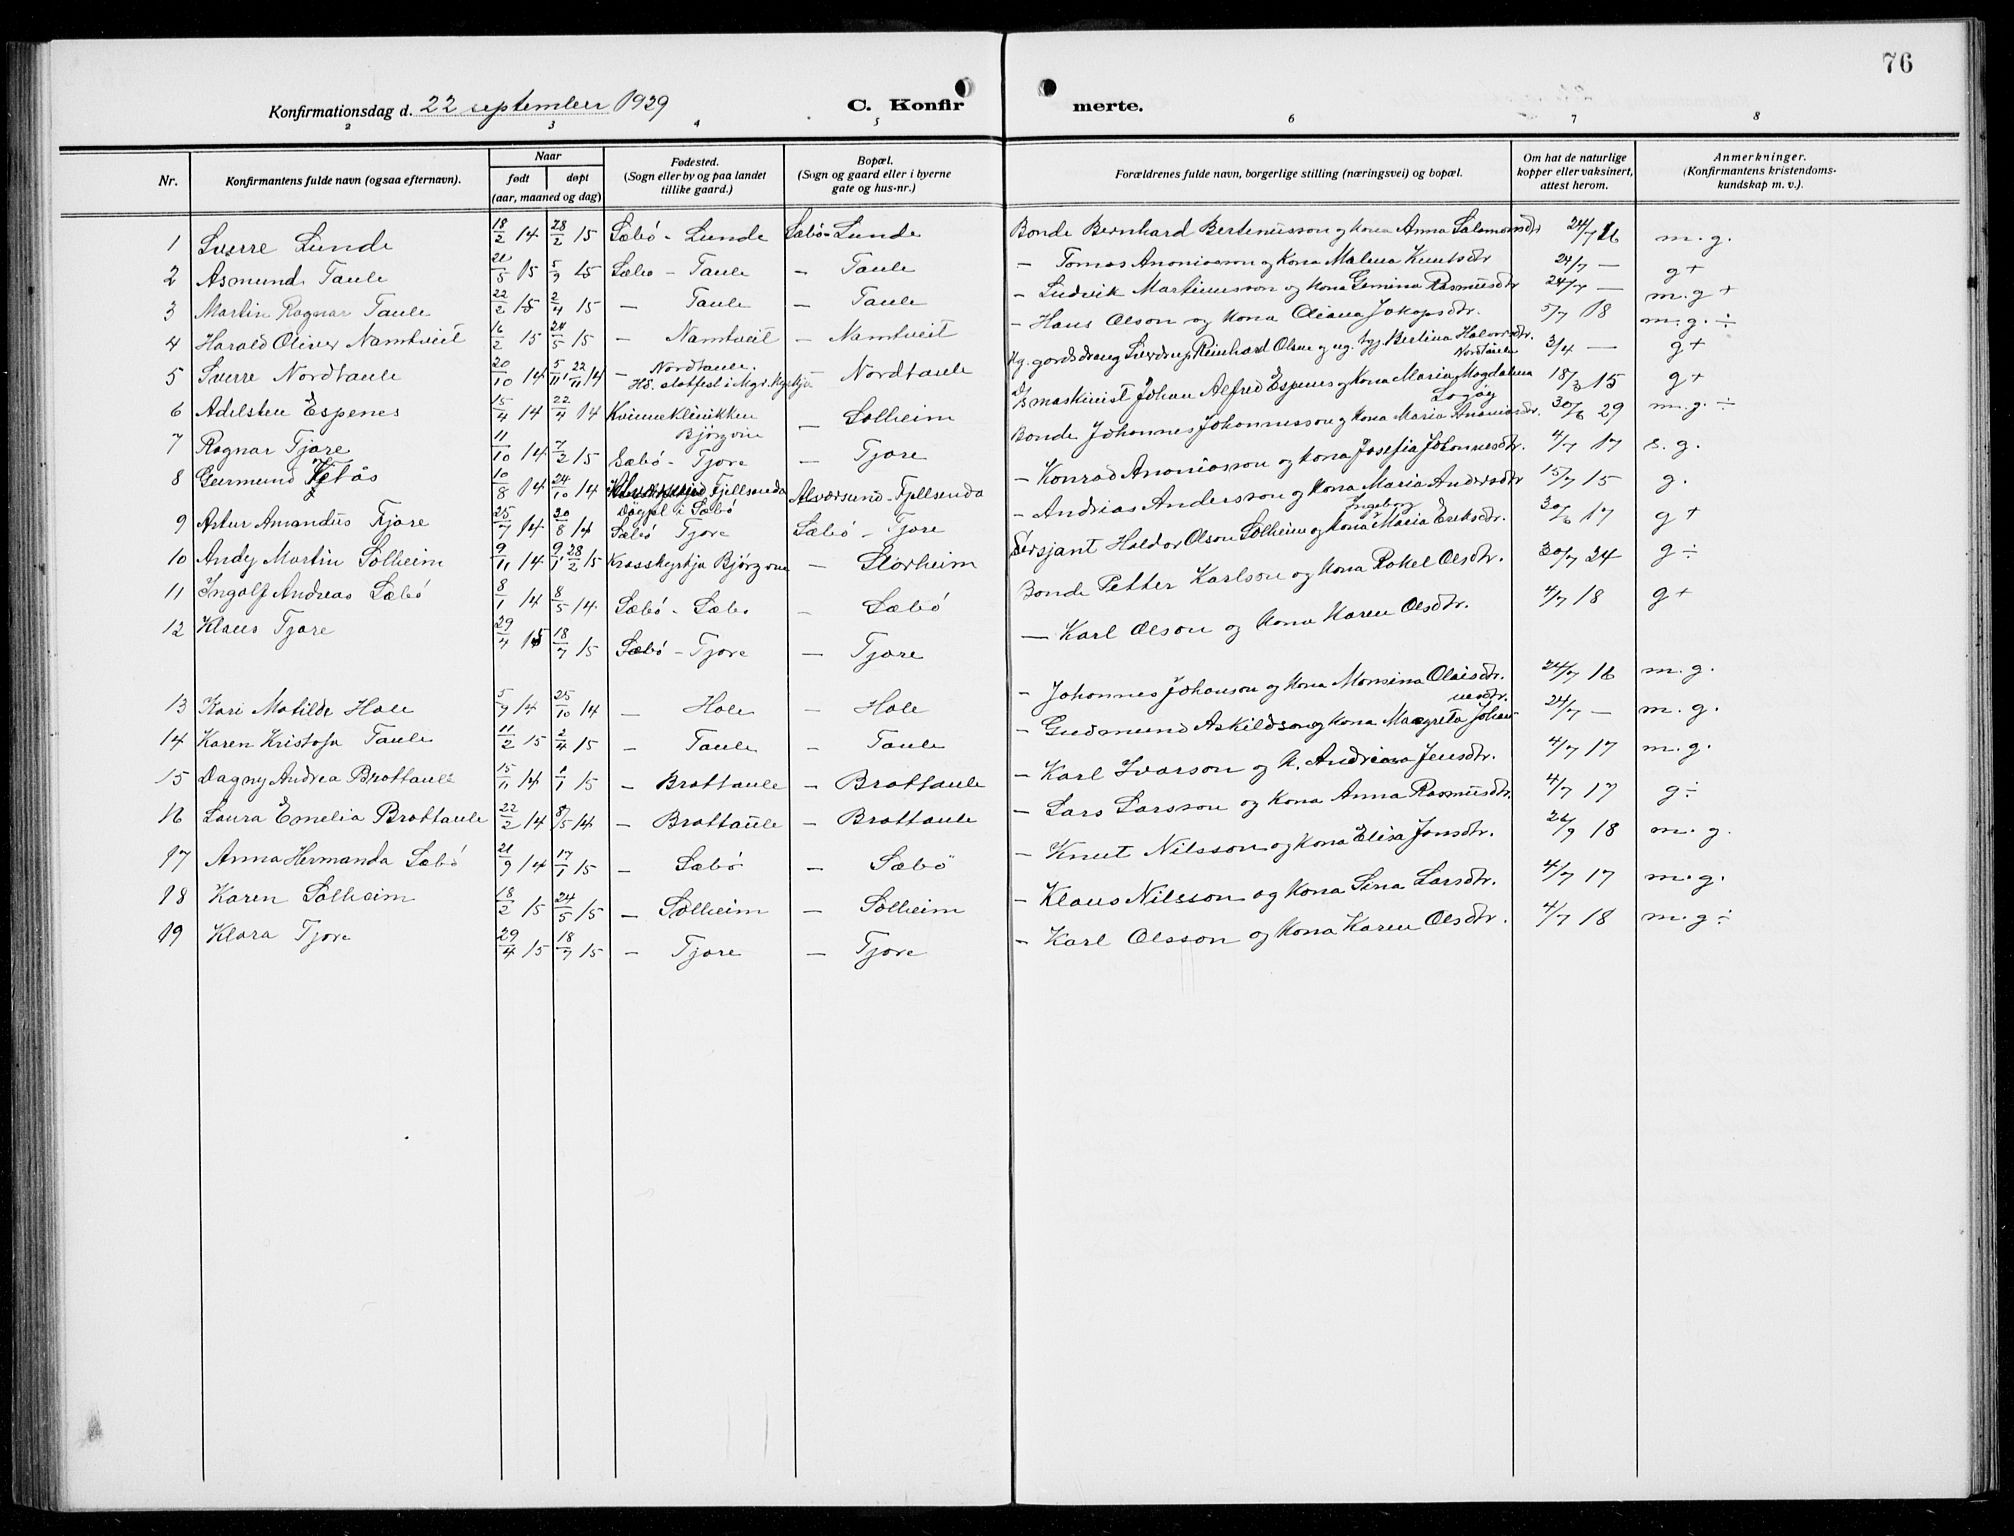 76
Konfirmationsdag d. 22 september 1929
C. Konfir merte.
2 3 4 5 6 7 8
Nr.
Konfirmantens fulde navn (ogsaa efternavn).
Naar
født døpt
(aar, maaned og dag)
Fødested.
(Sogn eller by og paa landet
tillike gaard.)
Bopæl.
(Sogn og gaard eller i byerne
gate og hus-nr.)
Forældrenes fulde navn, borgerlige stilling (næringsvei) og bopæl.
Om hat de naturlige
kopper eller vaksinert,
attest herom.
Anmerkninger.
(Konfirmantens kristendoms-
kundskap m. v.).
1 Sverre Lunde 18/2 14 28/2 15 Sæbö - Lunde Sæbö - Lunde Bonde Bernhard Bertinusson og kona Anna Salomonsdtr 24/7 16 m. g.
2 Asmund Taule 21/5 15 5/9 15 Sæbö - Taule — Taule — Tomas Ananiasson og kona Malena Knutsdtr 24/7 — g +
3 Martin Ragnar Taule 22/2 15 2/4 15 — Taule — Taule — Ludvik Martinusson og kona Gemina Rasmusdtr 24/7 — m. g +
4 Harald Oliver Namtveit 16/2 15 24/5 15 — Namtveit — Namtveit — Hans Olson og kona Oliana Jakopsdtr. 5/7 18 m. g. ÷
5 Sverre Nordtaule 20/10 14 5/11, 22/11 14 — Nordtaule. — Nordtaule Ug. gardsdreng Sverdrup Reinhard Olsen og ug. tyj Bertina Halvorsdtr. 3/4 — g +
Hd. statfest i Mgr. kyrkja
Nordtaule
6 Adelsten Espenes 15/4 14 22/4 14 Kvinneklinikken — Solheim D/s maskinist Johan Alfred Espenes og kona Maria Magdalena 18/3 15 g +
Björgvin
Lagöy
7 Ragnar Tjore 11/10 14 7/2 15 Sæbö - Tjore — Tjore Bonde Johannes Johannesson og kona Maria Ananiasdtr. 30/6 29 m. g. ÷
8 Geirmund Tetås 10/8 14 24/10 14 Fjellsenda Alversund - Fjellsenda — Konrad Ananiasson og kona Josefia Johannesdtr. 4/7 17 s. g.
Döypt i Sæbö
9 Artur Amandus Tjore 25/7 14 20/8 14 Sæbö Tjore Sæbö - Tjore — Andrias Andersson og kona Maria Andersdtr 15/7 15 g.
Ingeborg
10 Andy Martin Solheim 9/11 14 9/1 28/2 15 Krosskyrkja Björgvin — Storheim Sersjant Haldor Olson Solheim og kona Maria Eriksdtr. 30/6 17 g +
11 Ingolf Andreas Sæbö 8/1 14 8/5 14. Sæbö - Sæbö — Sæbö Bonde Petter Karlson og kona Rakel Olsdtr. 30/7 24 g ÷
12 Klaus Tjore 29/4 15 18/7 15 Sæbö - Tjore — Tjore — Karl Olson og kona Karen Olsdtr. 4/7 18 g +
13 Kari Matilde Hole 5/7 14 25/10 14 — Hole — Hole — Johannes Johanson og kona Monsina Olaisdtr. 24/7 16 m. g.
14 Karen Kristofa Taule 11/2 15 2/4 15 — Taule — Taule — Gudmund Askildson og kona Margreta Johan-
nesdtr. 24/7 — m. g.
15 Dagny Andrea Brattaule 15/11 14 1/1 15 — Brattaule — Brattaule — Karl Ivarson og k. Andrica Jensdtr. 4/7 17 m. g.
16 Laura Emelia Brattaule 22/2 14 8/5 14 — Brattaule — Brattaule — Lars Larsson og kona Anna Rasmusdtr. 4/7 17 g ÷
17 Anna Hermanda Sæbö 21/9 14 17/1 15 — Sæbö — Sæbö — Knut Nilsson og kona Elisa Jonsdtr. 26/9 18 m. g.
18 Karen Solheim 18/2 15 24/5 15 — Solheim — Solheim — Klaus Nilsson og kona Sina Larsdtr. 4/7 17 m. g.
19 Klara Tjore 29/4 15 18/7 15 — Tjore — Tjore — Karl Olsson og kona Karen Olsdtr. 4/7 18 m. g ÷